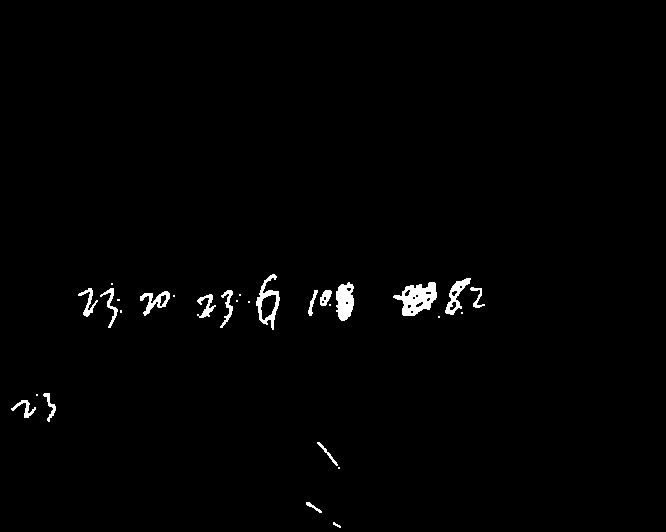 23 20 23 6 10 82
23